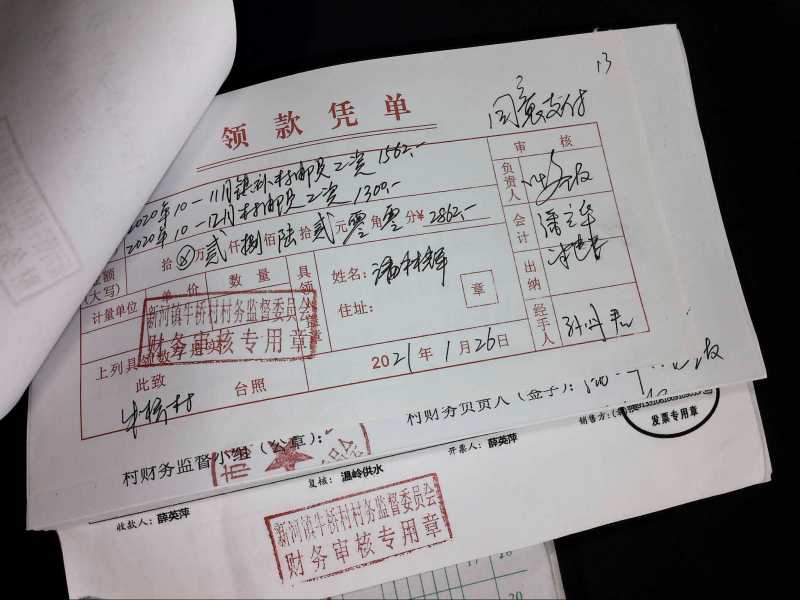 13
领款凭单
同意支付
2020年10-11月镇补村邮员工资1562.-
2020年10-12月村邮员工资1300.-
金额
(大写)
拾⊗万贰仟捌佰陆拾贰元零角零分¥2862.-
计量单位 单价 数量
具领人
姓名:潘林辉
住址:
章
新河镇牛桥村村务监督委员会
财务审核专用章
上列具领数
2021年1月26日
此致
台照
牛桥村
审核
负责人
会计
出纳
经手人
村财务监督小组(公章):
村财务负责人(签字):
市
收款人:薛英萍
复核:温岭供水
开票人:薛英萍
销售方:(
发票专用章
新河镇牛桥村村务监督委员会
财务审核专用章
17 28
20